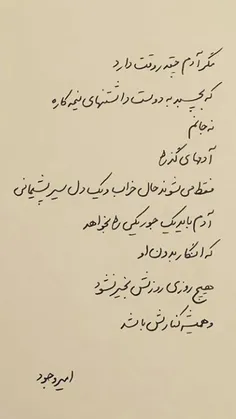 مگر آدم چقدر وقت دارد
که بچسبد به دوست داشتنهای نیمه کاره
نه جانم
آدمهای گذرا
فقط می شوند حال خراب و یک دل سیر پشیمانی
آدم باید یک جور یکی را بخواهد
که انگار بدون او
هیچ روزی روزش بخیر نشود
و همیشه کنارش باشد
امیر وجود